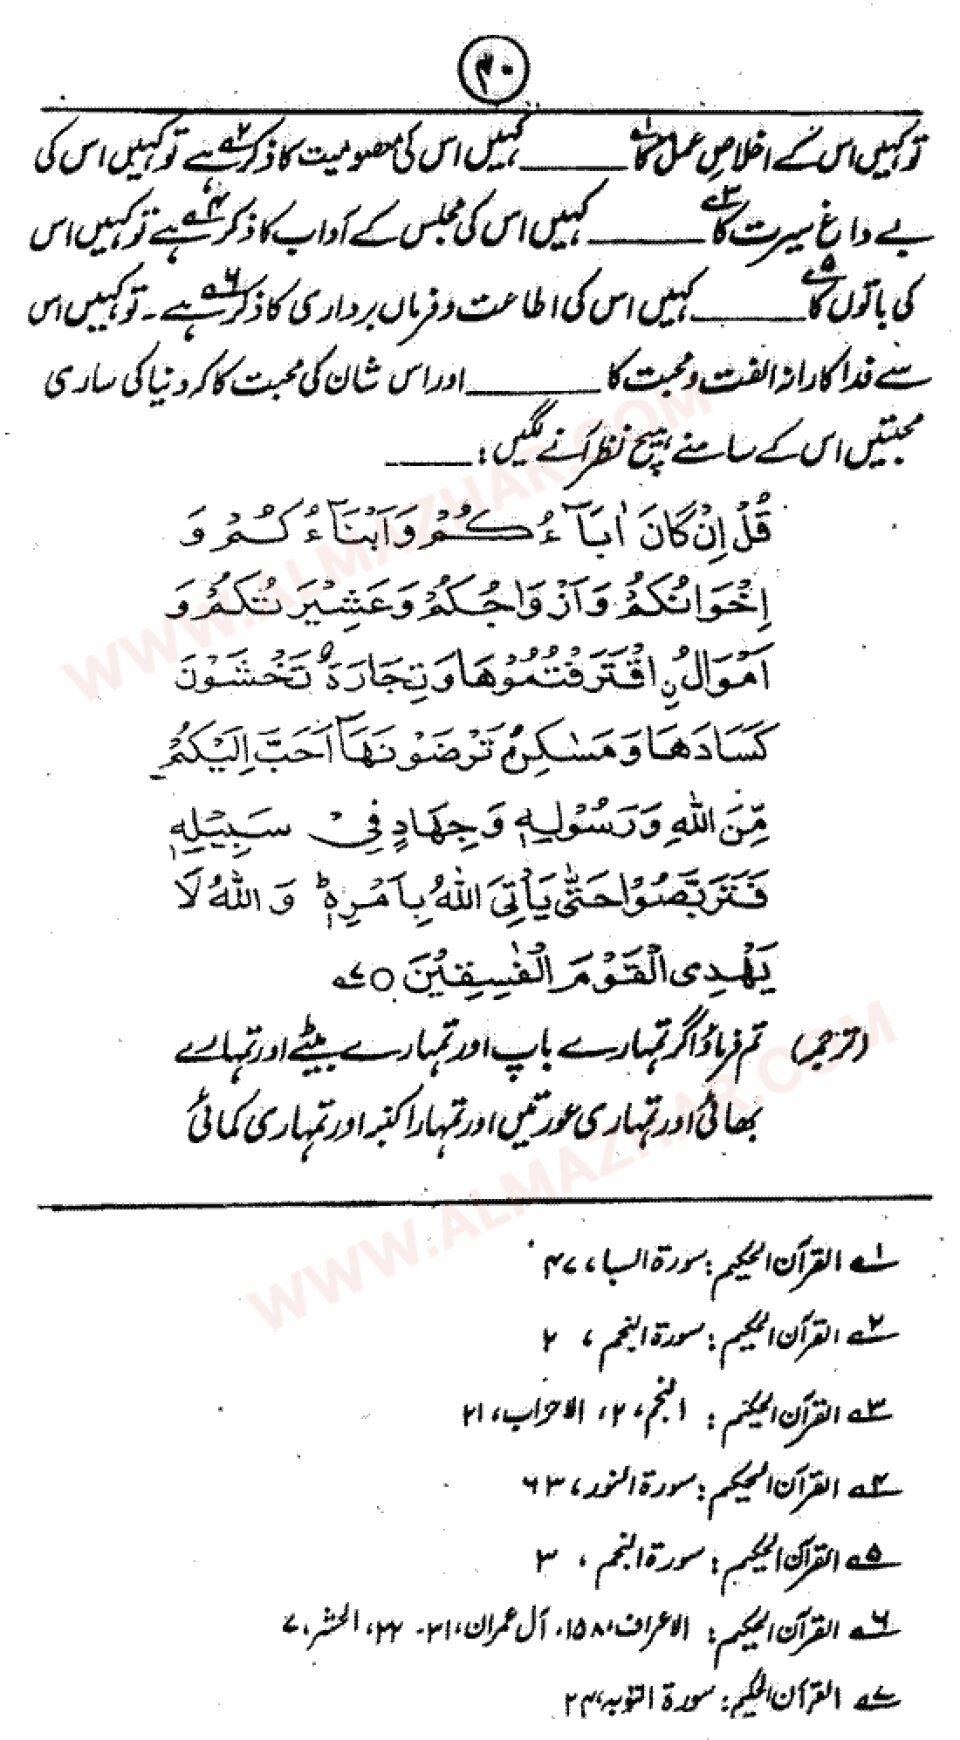 ۴۰
تو کہیں اس کے اخلاصِ عمل کا ۱؎ ــــــ کہیں اس کی معصومیت کا ذکر ۲؎ ہے تو کہیں اس کی
بے داغ سیرت کا ۳؎ ــــــ کہیں اس کی مجلس کے آداب کا ذکر ۴؎ ہے تو کہیں اس
کی باتوں کا ۵؎ ــــــ کہیں اس کی اطاعت و فرماں برداری کا ذکر ۶؎ ہے۔ تو کہیں اس
سے فداکارانہ الفت و محبت کا ــــــ اور اس شان کی محبت کا کہ دنیا کی ساری
محبتیں اس کے سامنے ہیچ نظر آنے لگیں : ــــــ
قُلْ اِنْ كَانَ اٰبَآءُكُمْ وَاَبْنَآءُكُمْ وَ
اِخْوَانُكُمْ وَاَزْوَاجُكُمْ وَعَشِيْرَتُكُمْ وَ
اَمْوَالُ نِ اقْتَرَفْتُمُوْهَا وَتِجَارَةٌ تَخْشَوْنَ
كَسَادَهَا وَمَسٰكِنُ تَرْضَوْنَهَآ اَحَبَّ اِلَيْكُمْ
مِّنَ اللّٰهِ وَرَسُوْلِهٖ وَجِهَادٍ فِيْ سَبِيْلِهٖ
فَتَرَبَّصُوْا حَتّٰى يَاْتِيَ اللّٰهُ بِاَمْرِهٖ ؕ وَاللّٰهُ لَا
يَهْدِى الْقَوْمَ الْفٰسِقِيْنَ ○ ۷؎
(ترجمہ) تم فرماؤ اگر تمہارے باپ اور تمہارے بیٹے اور تمہارے
بھائی اور تمہاری عورتیں اور تمہارا کنبہ اور تمہاری کمائی
۱؎ القرآن الحکیم : سورۃ السبا، ۴۷
۲؎ القرآن الحکیم : سورۃ النجم ، ۲
۳؎ القرآن الحکیم : النجم، ۲، الاحزاب، ۲۱
۴؎ القرآن الحکیم : سورۃ النور، ۶۳
۵؎ القرآن الحکیم : سورۃ النجم ، ۳
۶؎ القرآن الحکیم : الاعراف، ۱۵۸، آل عمران، ۳۱۔ ۳۲، الحشر، ۷
۷؎ القرآن الحکیم : سورۃ التوبہ، ۲۴
WWW.ALMAZHAR.COM
WWW.ALMAZHAR.COM